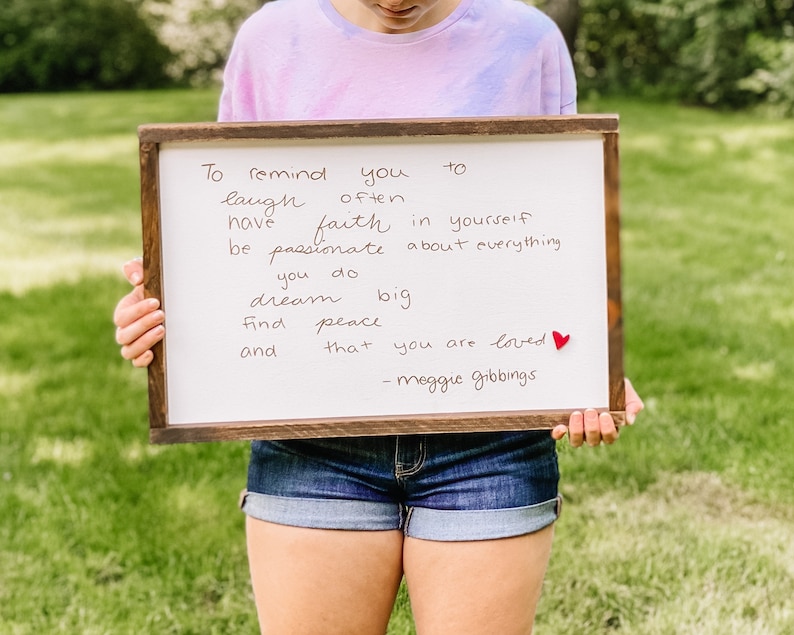 To remind you to
laugh often
have faith in yourself
be passionate about everything
you do
dream big
find peace
and that you are loved
- meggie gibbings